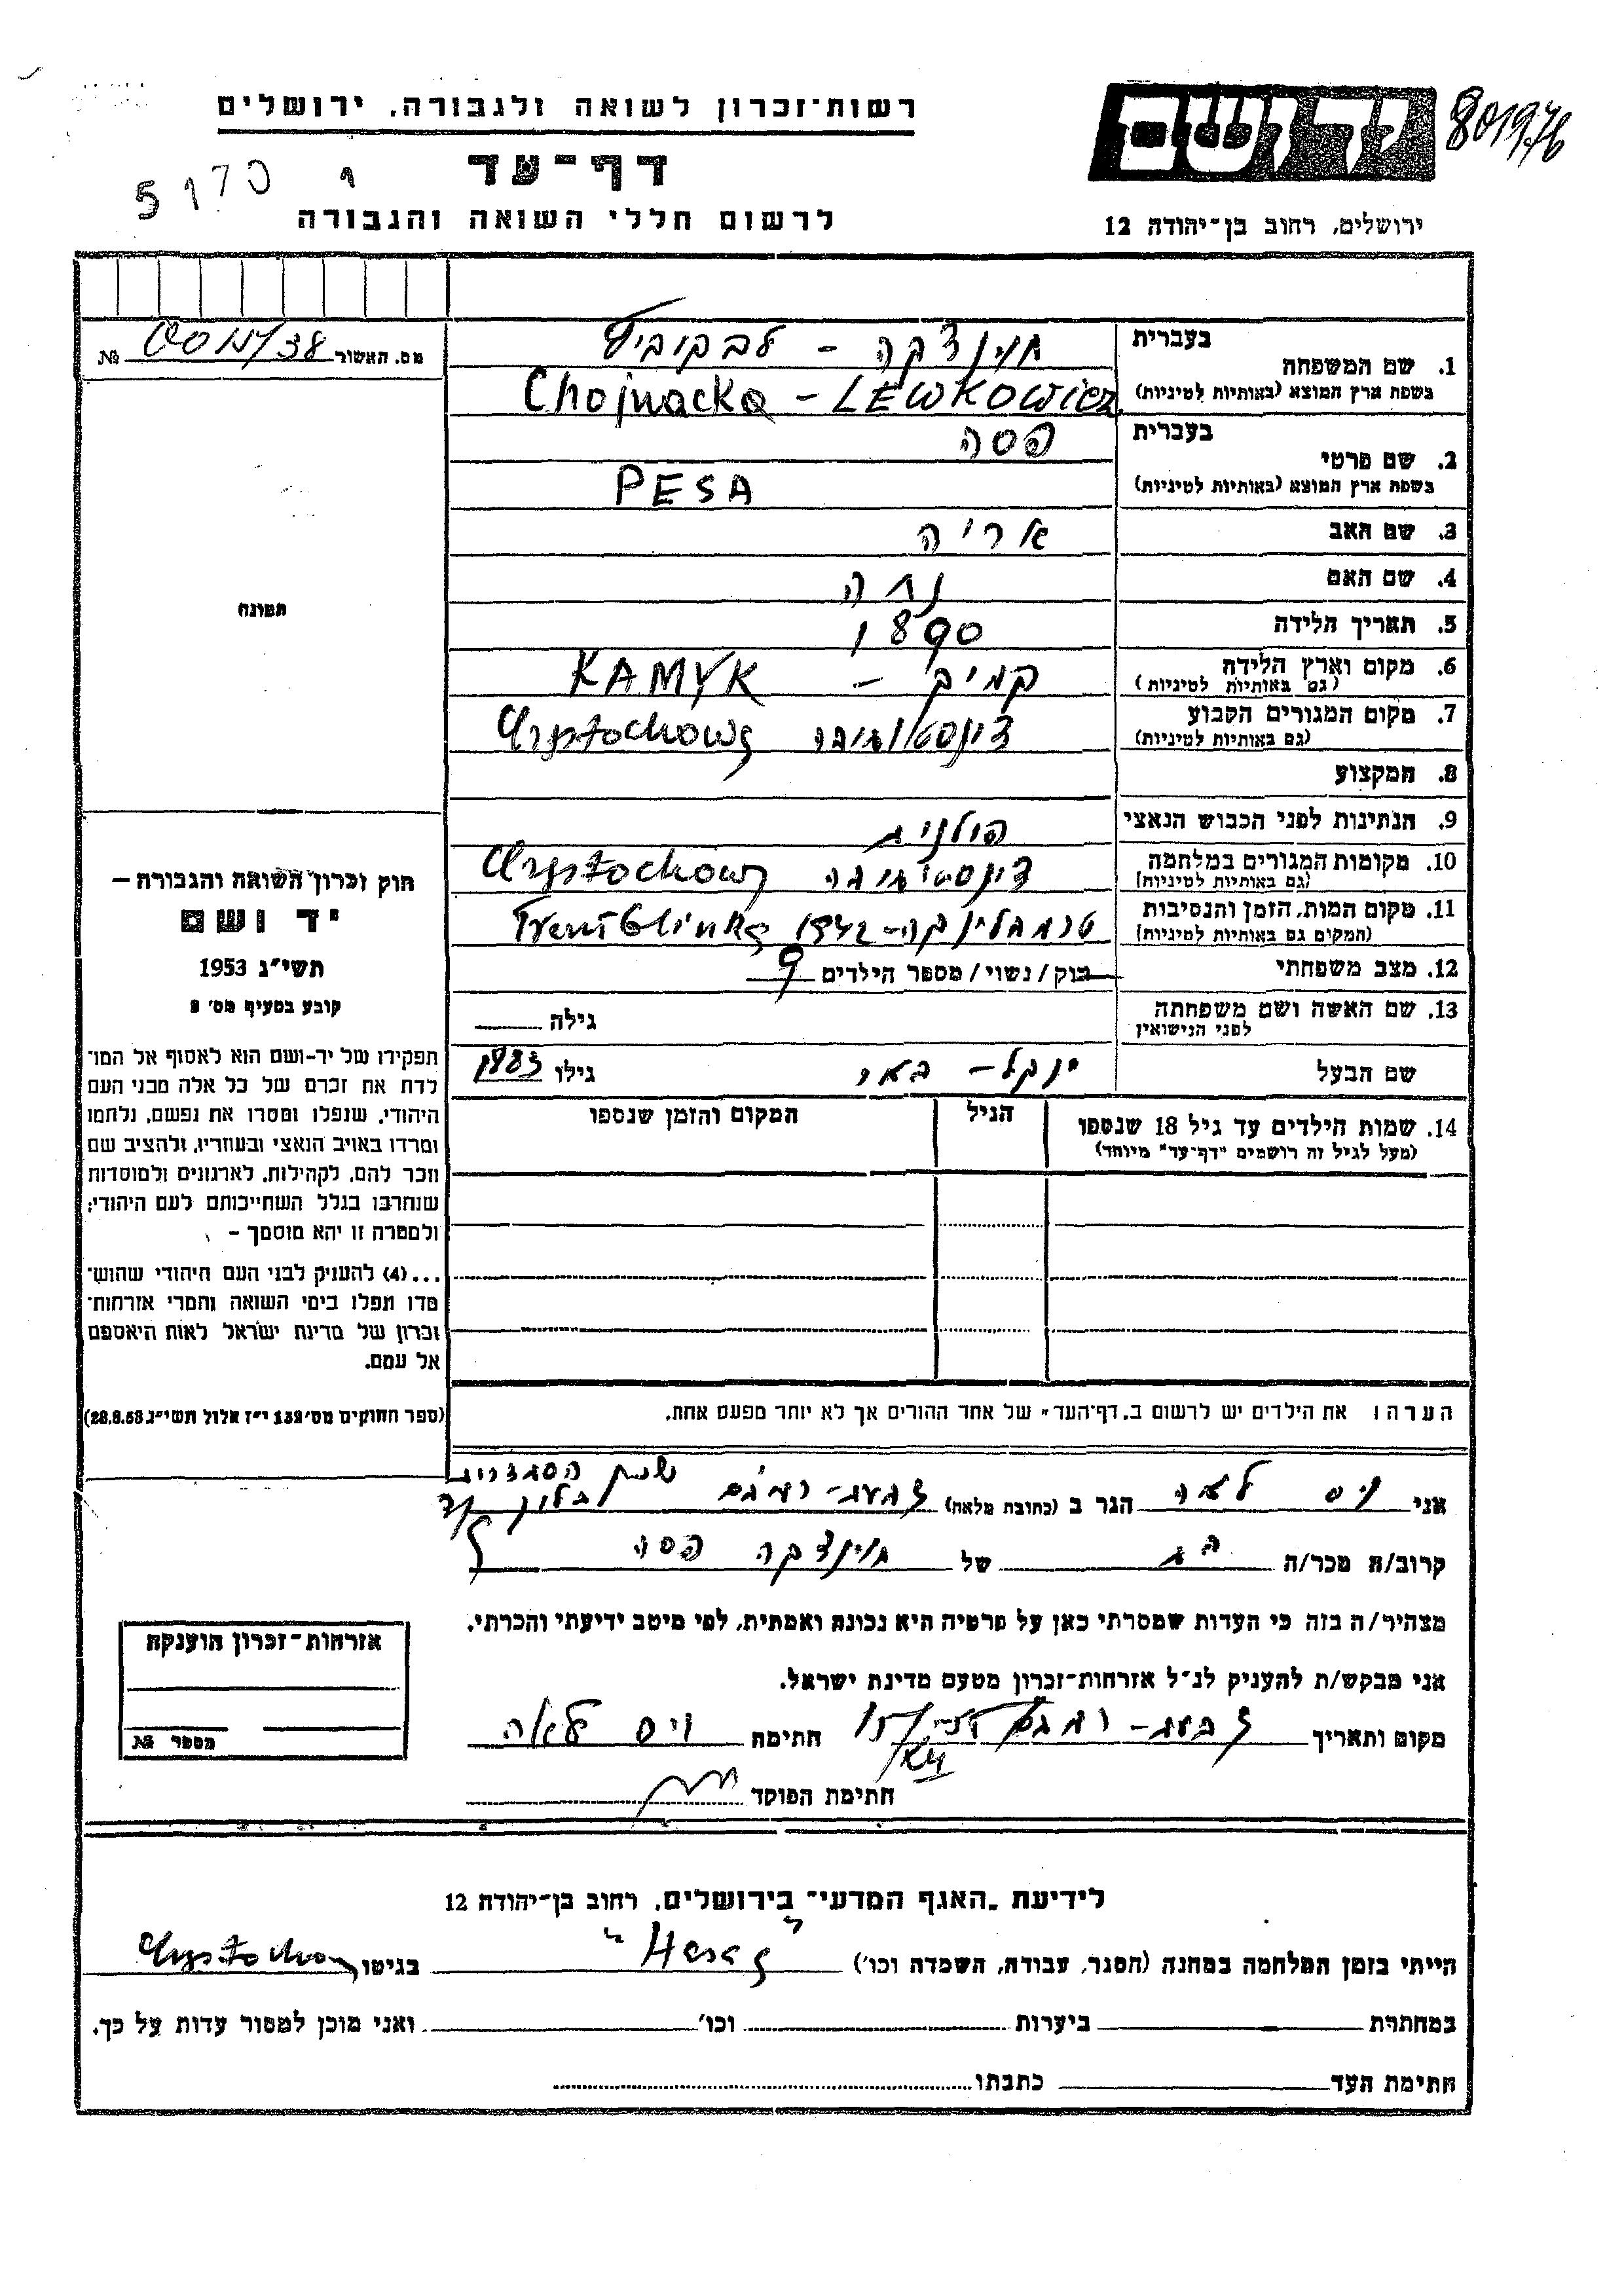 רשות־זכרון לשואה ולגבורה, ירושלים
דף־עד
לרשום חללי השואה והגבורה
5170
יד ושם
801976
ירושלים, רחוב בן־יהודה 12
מס. האשור №
תמונה
חוק זכרון השואה והגבורה —
יד ושם
תשי"ג 1953
קובע בסעיף מס' 2
תפקידו של יד־ושם הוא לאסוף אל המו־
לדת את זכרם של כל אלה מבני העם
היהודי, שנפלו ומסרו את נפשם, נלחמו
ומרדו באויב הנאצי ובעוזריו, ולהציב שם
וזכר להם, לקהילות, לארגונים ולמוסדות
שנחרבו בגלל השתייכותם לעם היהודי;
ולמטרה זו יהא מוסמך —
...(4) להעניק לבני העם היהודי שהוש־
מדו ונפלו בימי השואה והמרי אזרחות־
זכרון של מדינת ישראל לאות היאספם
אל עמם.
(ספר החוקים מס' 132 י"ז אלול תשי"ג 28.8.53)
1. שם המשפחה בעברית חוינצקה - לבקוביץ
בשפת ארץ המוצא (באותיות לטיניות) Chojnacka - LEWKOWICZ
2. שם פרטי בעברית פסה
בשפת ארץ המוצא (באותיות לטיניות) PESA
3. שם האב אריה
4. שם האם
5. תאריך הלידה 1890
6. מקום וארץ הלידה (גם באותיות לטיניות) קמיק - KAMYK
7. מקום המגורים הקבוע (גם באותיות לטיניות)
8. המקצוע
9. הנתינות לפני הכבוש הנאצי פולנית
10. מקומות המגורים במלחמה (גם באותיות לטיניות)
11. מקום המות, הזמן והנסיבות (המקום גם באותיות לטיניות) טרמבלינקה - 1942 Tremblinka
12. מצב משפחתי רווק/נשוי/מספר הילדים 9
13. שם האשה ושם משפחתה לפני הנישואין גילה
שם הבעל ינקל - גילו 1883
14. שמות הילדים עד גיל 18 שנספו (מעל לגיל זה רושמים "דף־עד" מיוחד) הגיל המקום והזמן שנספו
הערה: את הילדים יש לרשום ב"דף־העד" של אחד ההורים אך לא יותר מפעם אחת.
אני ויס לאה הגר ב (כתובת מלאה) גבעת-רמבם
קרוב/ה מכר/ה בת של חוינצקה פסה
מצהיר/ה בזה כי העדות שמסרתי כאן על פרטיה היא נכונה ואמתית, לפי מיטב ידיעתי והכרתי.
אני מבקש/ת להעניק לנ"ל אזרחות־זכרון מטעם מדינת ישראל.
מקום ותאריך גבעת-רמבם חתימה ויס לאה
חתימת הפוקד
אזרחות־זכרון הוענקה
מספר №
לידיעת "האגף המדעי" בירושלים, רחוב בן־יהודה 12
הייתי בזמן המלחמה במחנה (הסגר, עבודה, השמדה וכו') "Hasag" בגיטו
במחתרת ביערות וכו' ואני מוכן למסור עדות על כך.
חתימת העד כתבתו